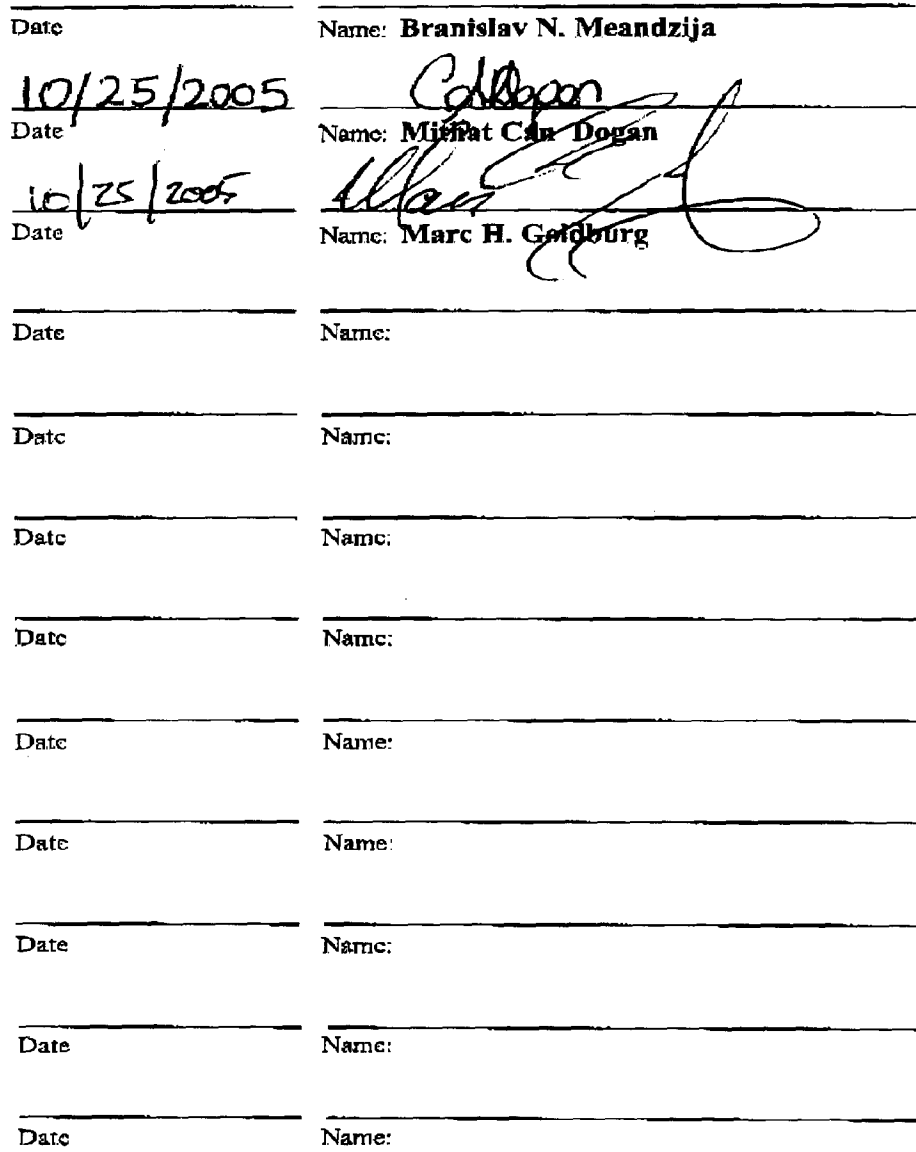 Date Name: Branislav N. Meandzija
10/25/2005
Date Name: Mithat Can Dogan
10/25/2005
Date Name: Marc H. Goldburg
Date Name:
Date Name:
Date Name:
Date Name:
Date Name:
Date Name:
Date Name:
Date Name:
Date Name: